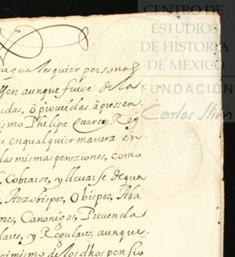 CENTRO DE
ESTUDIOS
DE HISTORIA
DE MEXICO
FUNDACIÓN
Carlos Slim
qualesquier person
aunque fuese de la
das, ò proveidas à presen
Phelipe Quarto, Rey
enqualquier manera en
las mismas penziones, como
Cobrarse, y lleuarse dequa
Arzobispos, Obispos, Aba
nes, Canonigos, Preuenda
lares, y Regulares, aunque
mismo de los dhos pensio